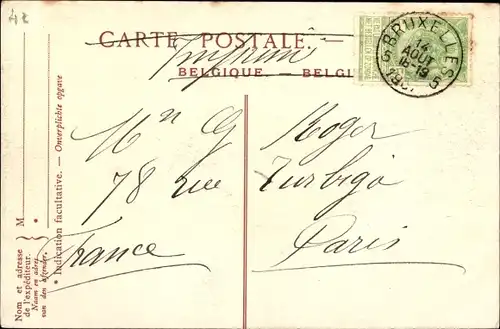 42
CARTE POSTALE.
Imprimé
BELGIQUE — BELGI
BRUXELLES 5
14
AOUT
16-19
Mr G Roger
78 rue Turbigo
Paris
France
* Indication facultative. — Onverplichte opgave
M *
Nom et adresse
de l'expéditeur.
Naam en adres
van den afzender.